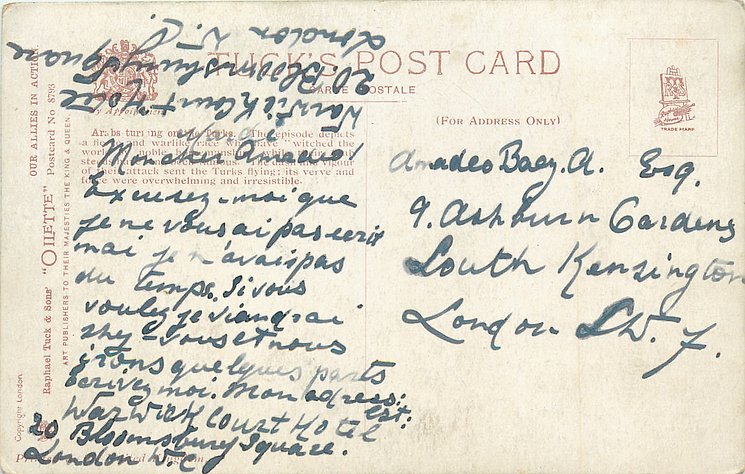 TUCK'S POST CARD
CARTE POSTALE
By Appointment
(FOR ADDRESS ONLY)
TRADE MARK
Arabs turning on the Turks. The episode depicts
a warlike race have "witched the
world
steeds
of their attack sent the Turks flying; its verve and
force were overwhelming and irresistible.
OUR ALLIES IN ACTION
Raphael Tuck & Sons' "OILETTE" Postcard No 8793
ART PUBLISHERS TO THEIR MAJESTIES THE KING & QUEEN
Copyright London
Warwick Court Hotel
20 Bloomsbury Square
London W.C.
Mon cher Amadeo,
Excusez-moi que
je ne vous ai pas ecrit
mai je n'avais pas
du temps. Si vous
voulez je viandrai
shez-vous et nous
irons quelques parts
écrivez moi. Mon adress:
est.
Warwick Court Hotel
20 Bloomsbury Square.
London W.C
Amadeo Baez. A. Esq.
9. Ashburn Gardens
South Kensington
London S.W. 7.